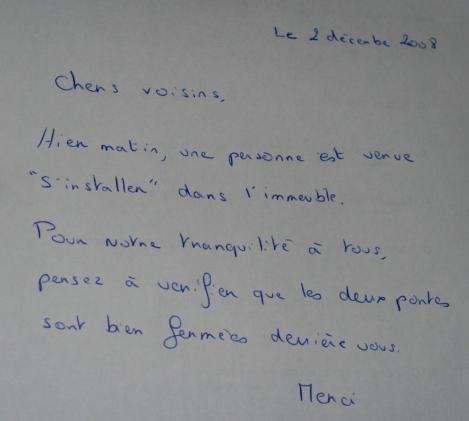 Le 2 décembe 2008
Chers voisins,
Hier matin, une personne est venue
"s'installer" dans l'immeuble.
Pour notre tranquilité à tous,
pensez à vérifier que les deux portes
sont bien fermées derrière vous.
Merci